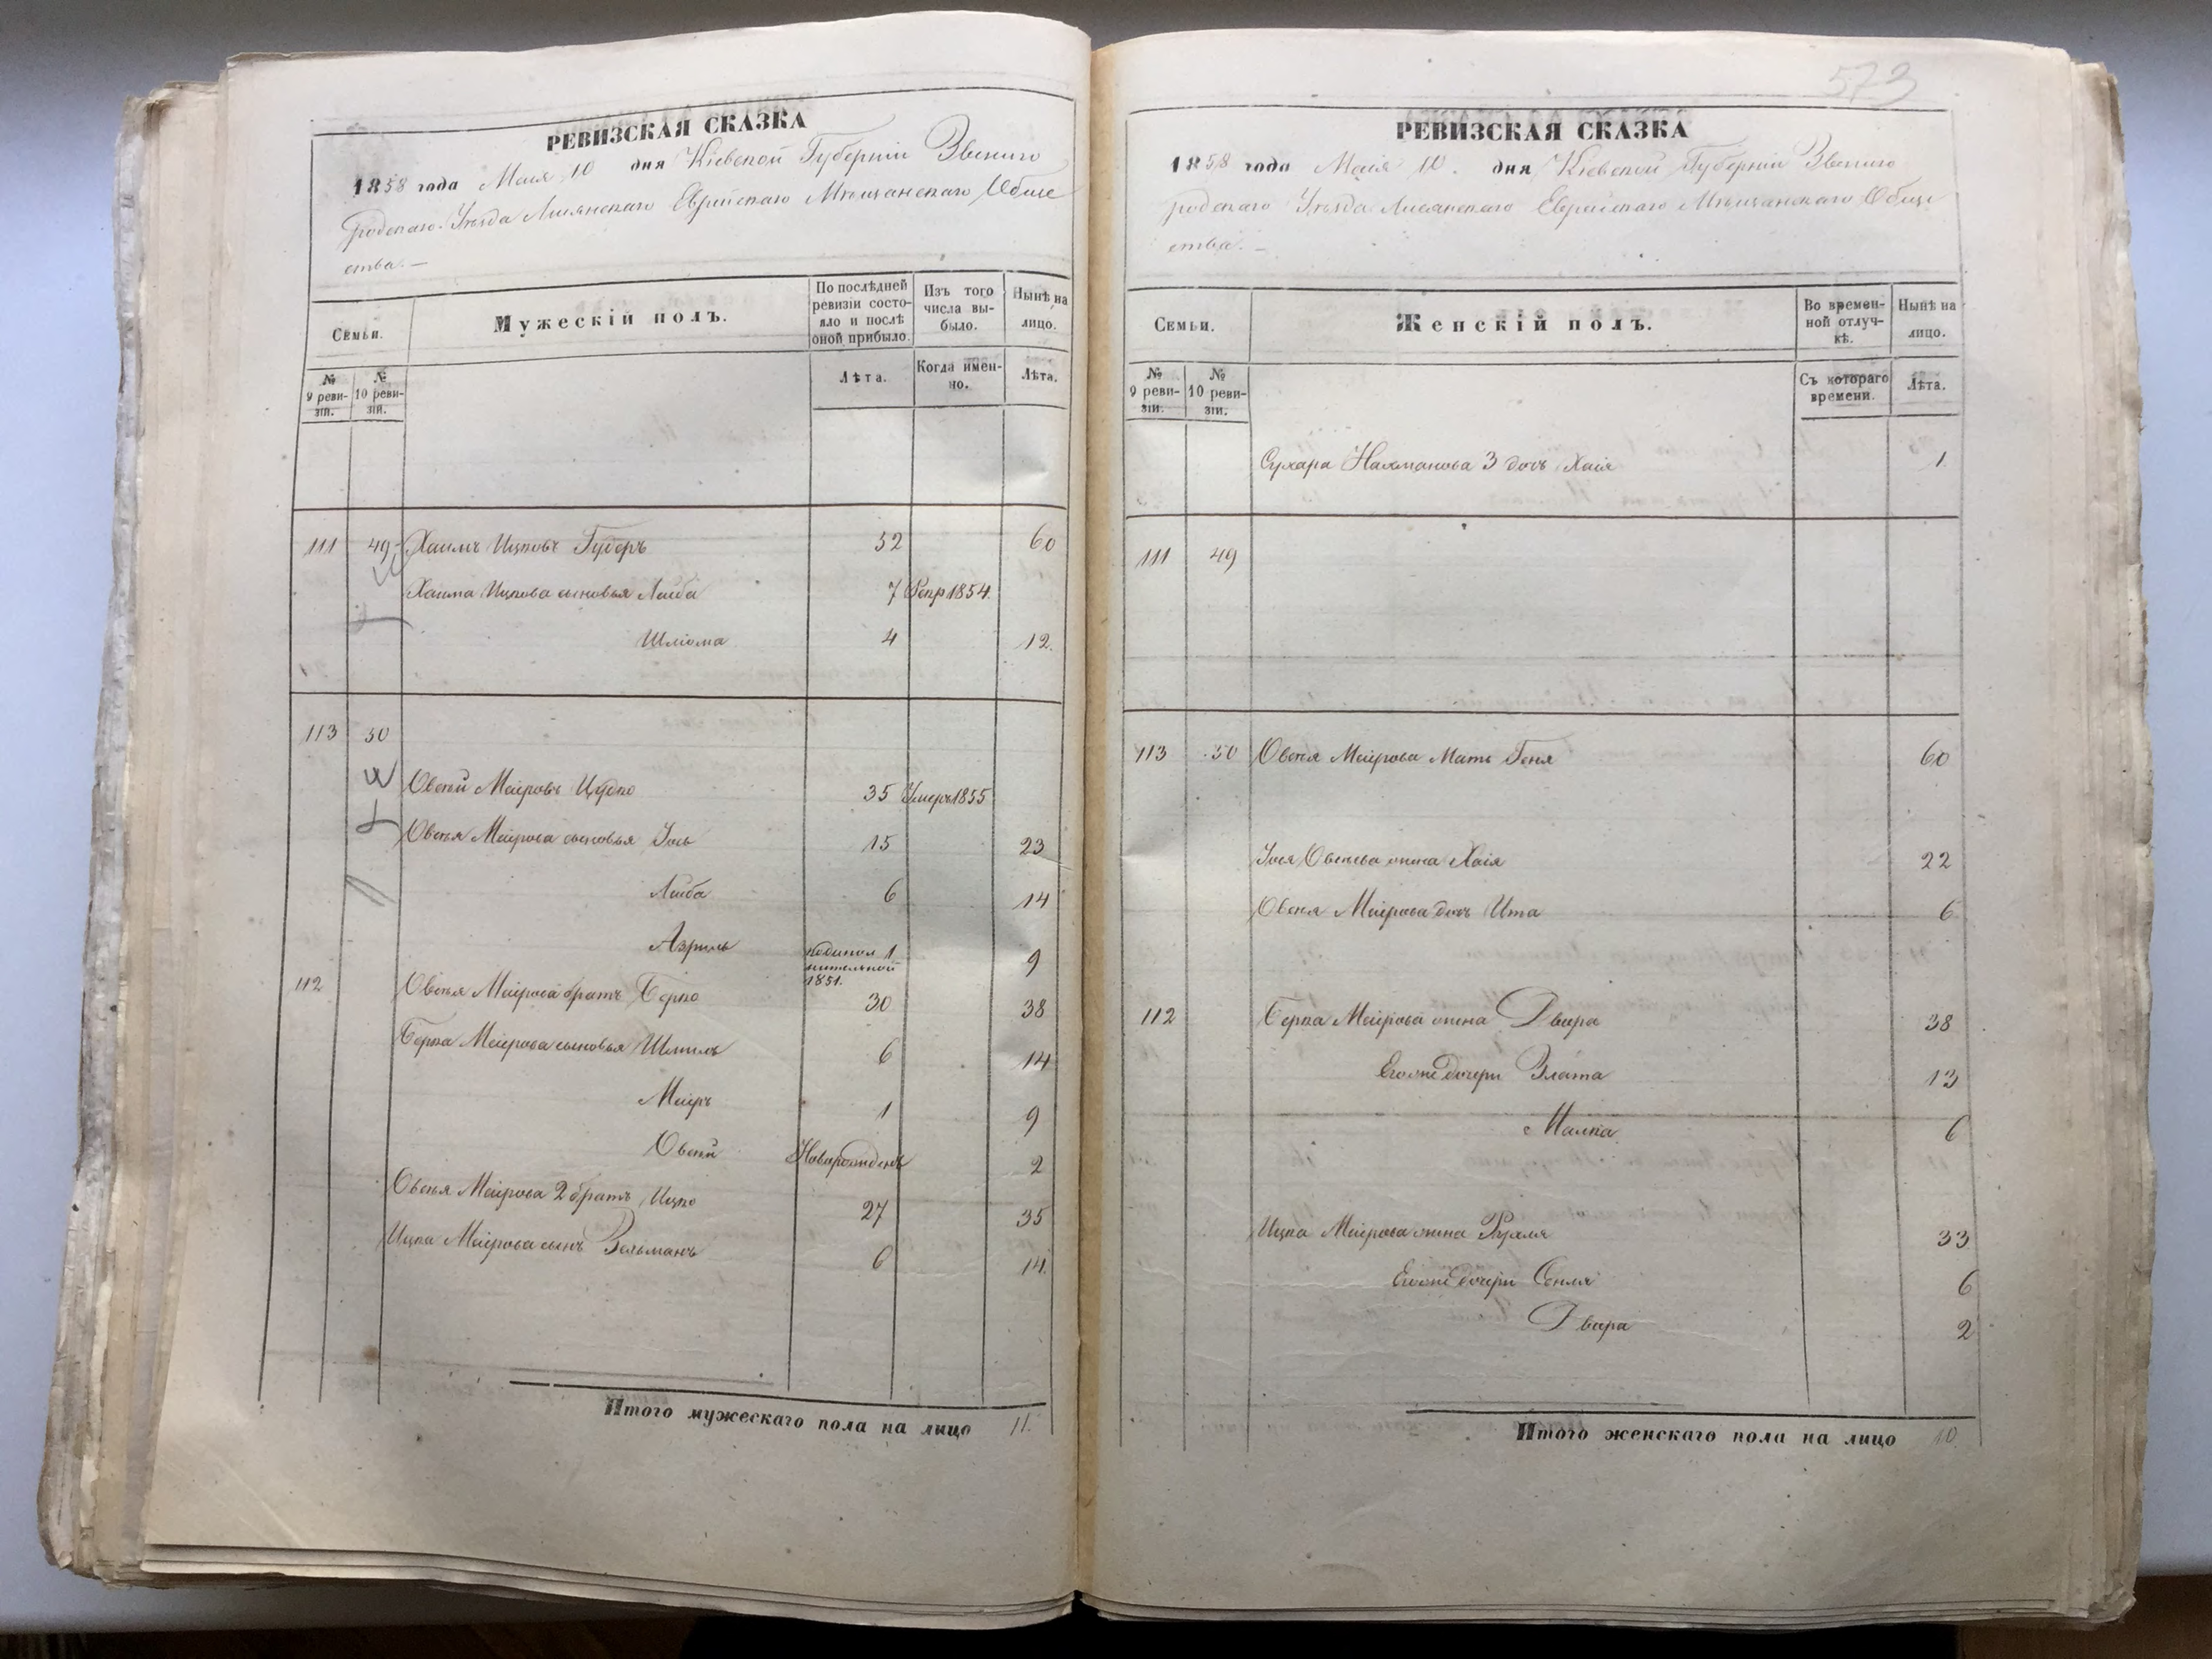 РЕВИЗСКАЯ СКАЗКА
1858 года Маія 10 дня Кіевской Губерніи Звениго
родскаго Уѣзда Лисянскаго Еврейскаго Мѣщанскаго Обще
ства. —
Семьи.
Мужескій полъ.
По послѣдней ревизіи состояло и послѣ оной прибыло.
Изъ того числа выбыло.
Нынѣ на лицо.
№ 9 ревизіи.
№ 10 ревизіи.
Лѣта.
Когда именно.
Лѣта.
111 49 Хаимъ Ицковъ Губеръ 52 60
Хаима Ицкова сыновья Лейба 7 1854.
Шліома 4 12.
113 50
Овсѣй Меіровъ Цудко 35 Умеръ 1855
Овсѣя Меірова сыновья Іось 15 23
Лейба 6 14
Азриль 1 9
1851.
112 Овсѣя Меірова братъ Берко 30 38
Берка Меірова сыновья Шмиль 6 14
Меіръ 1 9
Овсѣй Новорожденъ 2
Овсѣя Меірова 2 братъ Ицко 27 35
Ицка Меірова сынъ Зельманъ 6 14.
Итого мужескаго пола на лицо 11.
573
РЕВИЗСКАЯ СКАЗКА
1858 года Маія 10. дня Кіевской Губерніи Звениго
родскаго Уѣзда Лисянскаго Еврейскаго Мѣщанскаго Обще
ства. —
Семьи.
Женскій полъ.
Во временной отлучкѣ.
Нынѣ на лицо.
№ 9 ревизіи.
№ 10 ревизіи.
Съ котораго времени.
Лѣта.
Сухара Нахманова 3 дочь Хаія 1
111 49
113 50 Овсѣя Меірова Мать Геня 60
Іося Овсѣева жена Хаія 22
Овсѣя Меірова дочь Ита 6
112 Берка Меірова жена Двора 38
Егоже дочери Злата 13
Малка 6
Ицка Меірова жена Рухля 33
Егоже дочери 6
Двора 2
Итого женскаго пола на лицо 10